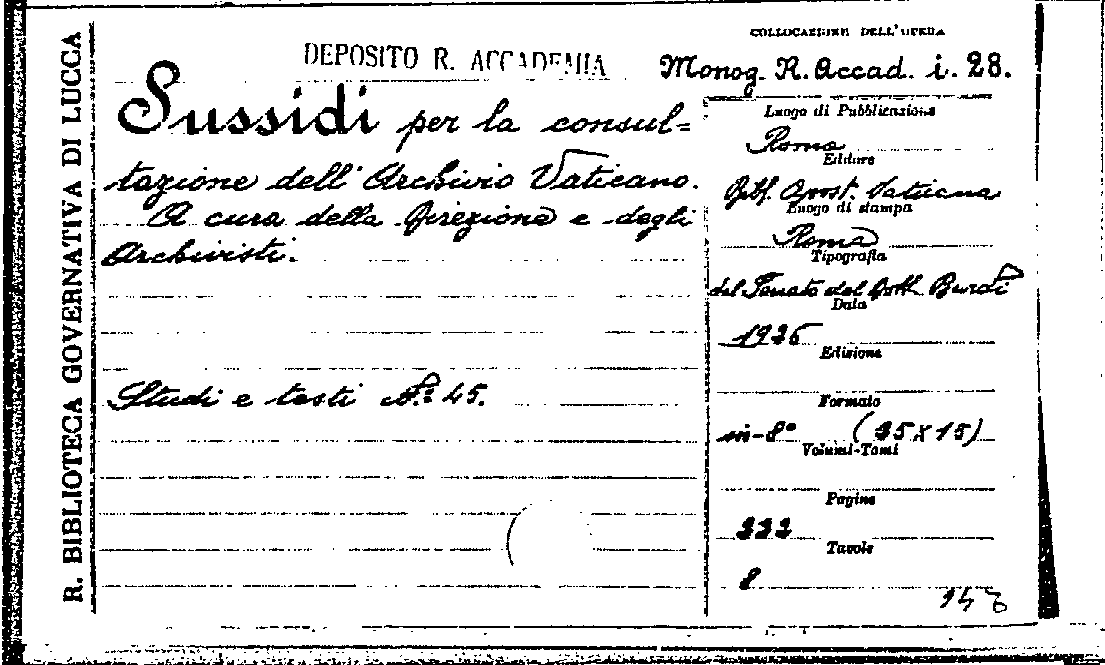 R. BIBLIOTECA GOVERNATIVA DI LUCCA
DEPOSITO R. ACCADEMIA
Sussidi per la consul=
tazione dell'Archivio Vaticano.
A cura della Direzione e degli
Archivisti.
Studi e testi N.º 45.
COLLOCAZIONE DELL'OPERA
Monog. R. Accad. i. 28.
Luogo di Pubblicazione
Roma
Editore
Bibl. Apost. Vaticana
Luogo di stampa
Roma
Tipografia
del Senato del Dott. Bardi
Data
1926
Edizione
Formato
in-8º (25 x 15)
Volumi-Tomi
Pagine
222
Tavole
8